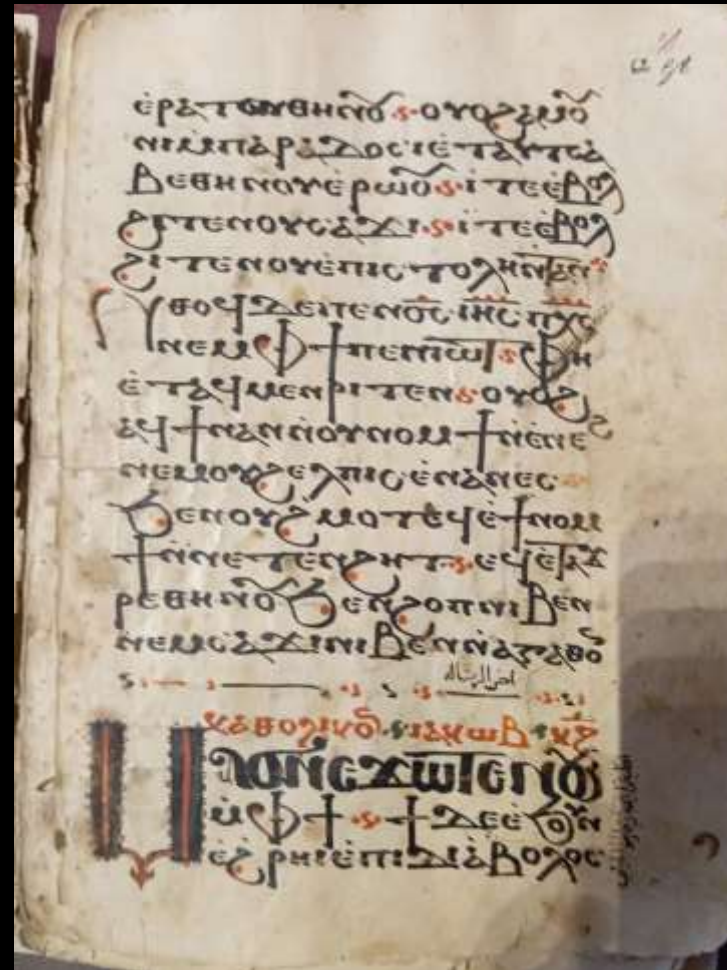 ⲉ̀ⲣⲁⲧⲉⲛⲑⲏⲛⲟ̅ ⲟⲩⲟϩ ⲁ̀ⲙⲟ̅
ⲛⲓⲙ̀ⲡⲁⲣⲁⲇⲟⲥⲓⲥ ⲉ̀ⲧⲁⲩⲧⲥⲁ
ⲃⲉⲑⲏⲛⲟⲩ ⲉ̀ⲣⲱⲟ̅ ⲓ̀ⲧⲉ ⲉ̀ⲃⲟⲗ
ϩⲓⲧⲉⲛ ⲟⲩⲥⲁϫⲓ ⲓ̀ⲧⲉ ⲉ̀ⲃⲟⲗ
ϩⲓⲧⲉⲛ ⲟⲩⲉ̀ⲡⲓⲥⲧⲟⲗⲏ ⲛ̀ⲧⲁⲛ
ⲛ̀ⲑⲟϥ ⲇⲉ ⲡⲉⲛⲟ̅ⲥ̅ ⲓⲏ̅ⲥ̅ ⲡⲭ̅ⲥ̅
ⲛⲉⲙ ⲫϯ ⲡⲉⲛⲓⲱⲧ ⲫⲏ
ⲉ̀ⲧⲁϥⲙⲉⲛⲣⲓⲧⲉⲛ ⲟⲩⲟϩ
ⲁϥϯ ⲛⲁⲛ ⲛ̀ⲟⲩⲛⲟⲙϯ ⲛ̀ⲉ̀ⲛⲉ
ⲛⲉⲙ ⲟⲩϩⲉⲗⲡⲓⲥ ⲉ̀ⲛⲁⲛⲉⲥ
ϧⲉⲛ ⲟⲩϩⲙⲟⲧ ⲉ̀ϥⲉ̀ϯⲛⲟⲙ
ϯ ⲛ̀ⲛⲉⲧⲉⲛϩⲏⲧ ⲉϥⲉ̀ⲧⲁϫ
ⲣⲉⲑⲏⲛⲟ̅ ϧⲉⲛ ϩⲱⲃ ⲛⲓⲃⲉⲛ
ⲛⲉⲙ ⲥⲁϫⲓ ⲛⲓⲃⲉⲛ ⲛ̀ⲁⲅⲁⲑⲟ̅
اخر الرسالة
ⲕⲁⲑⲟⲗⲓⲕⲟ̅ ⲓⲁⲕⲱⲃ
ⲙⲁϭⲛⲉϫⲱⲧⲉⲛ ⲟⲩ
ⲛ ⲙ̀ⲫϯ ϯ ⲇⲉ ⲉϧⲟⲩⲛ
ⲉϩⲣⲏⲓ ⲉ̀ⲡⲓⲇⲓⲁⲃⲟⲗⲟⲥ